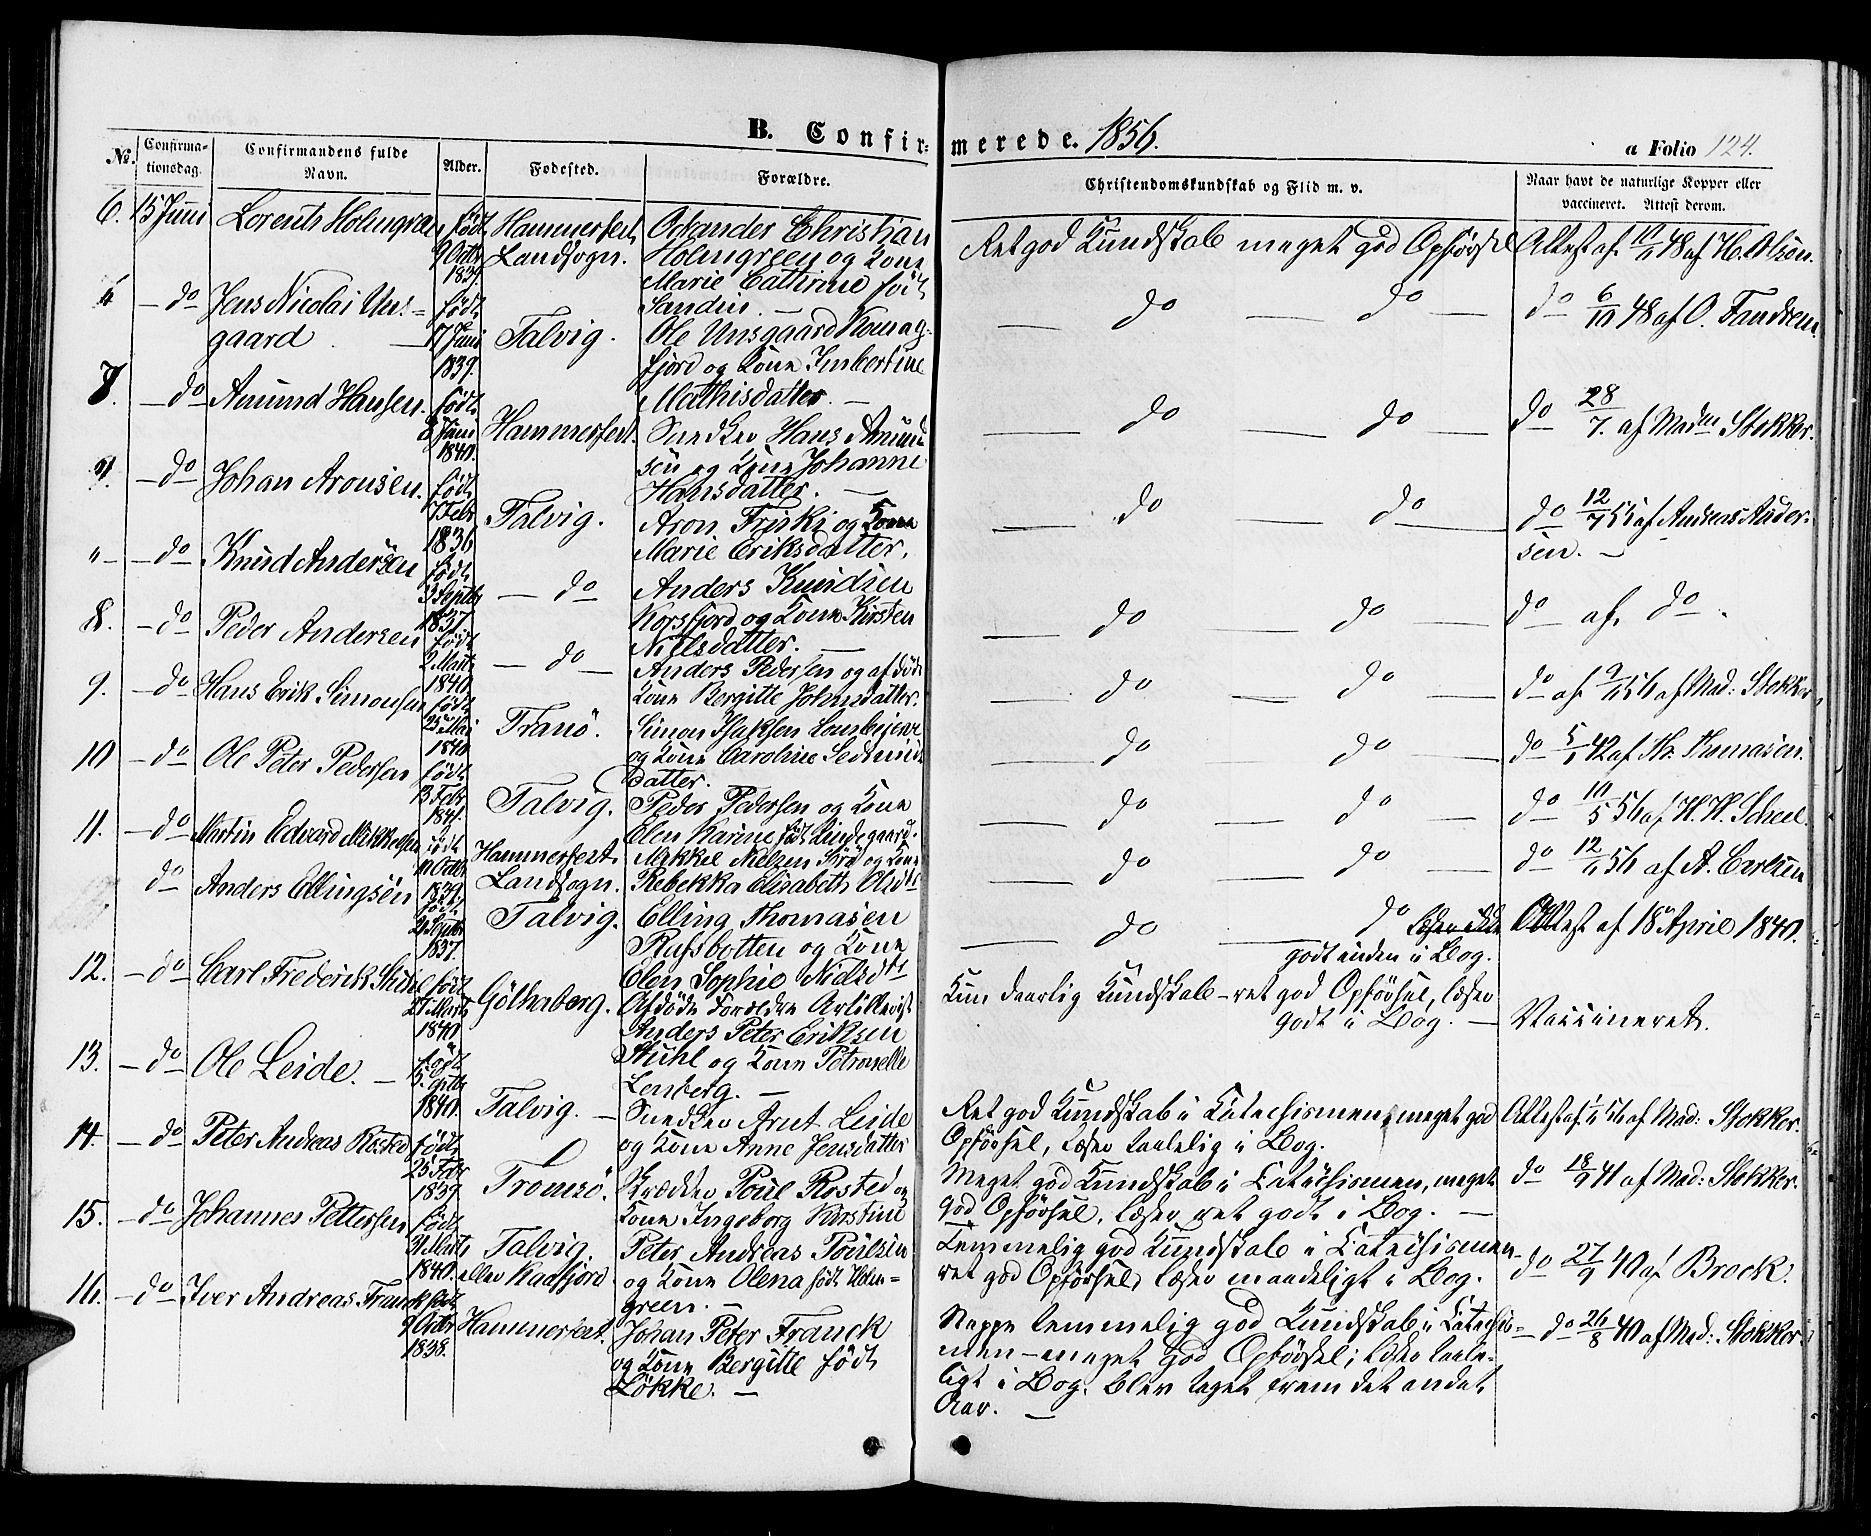 B. Confir- merede. 1856.
a Folio 124.
No. Confirma-tionsdag. Confirmandens fulde Navn. Alder. Fødested. Forældre. Christendomskundskab og Flid m. v. Naar havt de naturlige Kopper eller vaccineret. Attest derom.
6. 15 Juni Lorents Holmgreen født 9 Octbr 1839 Hammerfest Landsogn.
Christian
Holmgreen og Kone
Marie Cathrine født
Sandin. —
Ret god Kundskab meget god Opførsel Attest af 48 af H. Olsen.
— do Jens Nicolai Uns-
gaard født 17 Juni 1839. Talvig.
Ole Unsgaard Komag-
fjord og Kone Inbertine
Mathisdatter. —
do do do 6/10 48 af O. Tandrem
7. — do Amund Hansen. født 8 Juni 1840. Hammerfest.
Snedker Hans Amund
sen og Kone Johanne
Hansdatter. —
do do do 28/7. af Mad: Stokker.
— do Johan Aronsen. født 7 Febr 1836 Talvig.
Aron Friski og Kone
Marie Eriksdatter.
do do do 12/7 55 af Andreas Ander-
sen. —
" — do Knud Andersen født 3 Septbr 1837 — do
Anders Knudsen
Korsfjord og Kone Kirsten
Nielsdatter. —
do do do af do
8. — do Peder Andersen født 2 Marts 1840 — do —
Anders Pedersen og afdøde
Kone Bergitte Johnsdatter.
do do do af 56 af Mad: Stokker
9. — do Hans Erik Simonsen født 25 Mai 1840 Tranö.
Simon Isaksen
og Kone Caroline
datter.
do do do 42 af Thomasen.
10 — do Ole Peter Pedersen født 13 Febr 1841. Talvig.
Peder Pedersen og Kone
Elen Karine født Lindegaard.
do do do 10/5 56 af H. H. Scheel.
11. — do Martin Edvard Mikkelsen født 11 Octbr 1839 Hammerfest Landsogn.
Mikkel Nielsen og Kone
Rebekka Elisabeth Olsdtr
do do do 56 af A. Carlsen
do Anders Ellingsen født Septbr 1837. Talvig.
Elling Thomasen
Rafsbotten og Kone
Elen Sophie Nielsdtr
do do
godt inden i Bog.
Attest af 18 April 1840.
12. — do Carl Frederik Stuhl født 27 Marts 1840 Göthaborg.
Afdøde Forældre Artillerist
Anders Peter Eriksen
Stuhl og Kone Petronelle
Lenberg. —
Kun daarlig Kundskab — ret god Opførsel, læser
godt i Bog. — Vaccineret.
13. — do Ole Leide. — født 15 1840 Talvig. —
Snedker Arnt Leide
og Kone Anne Jensdatter
Ret god Kundskab i Katechismen, meget god
Opførsel, læser taalelig i Bog.
Attest af 56 af Mad: Stokker.
14. — do Peter Andreas Rosted født 25 Febr 1839 Tromsö.
Skrædder Poul Rosted og
Kone Ingeborg Kirstine
Meget god Kundskab i Catechismen, meget
god Opførsel, læser ret godt i Bog. —
do 18/9 41 af Mad: Stokker.
15. — do Johannes Pettersen født 31 Marts 1840. Talvig eller Kaafjord
Peter Andreas Poulsen
og Kone Olena født Holm-
green. —
Temmelig god Kundskab i Catechismen
ret god Opførsel, læser maadeligt i Bog.
do 27/9 40 af Brock.
16. — do Iver Andreas Franck født 9 Octbr 1838. Hammerfest.
Johan Peter Franck
og Kone Bergitte født
Løkke. —
Neppe temmelig god Kundskab i Catechis-
men — meget god Opførsel; læser taale-
ligt i Bog. blev taget frem det andet
Aar. —
do 26/8 40 af Mad: Stokker